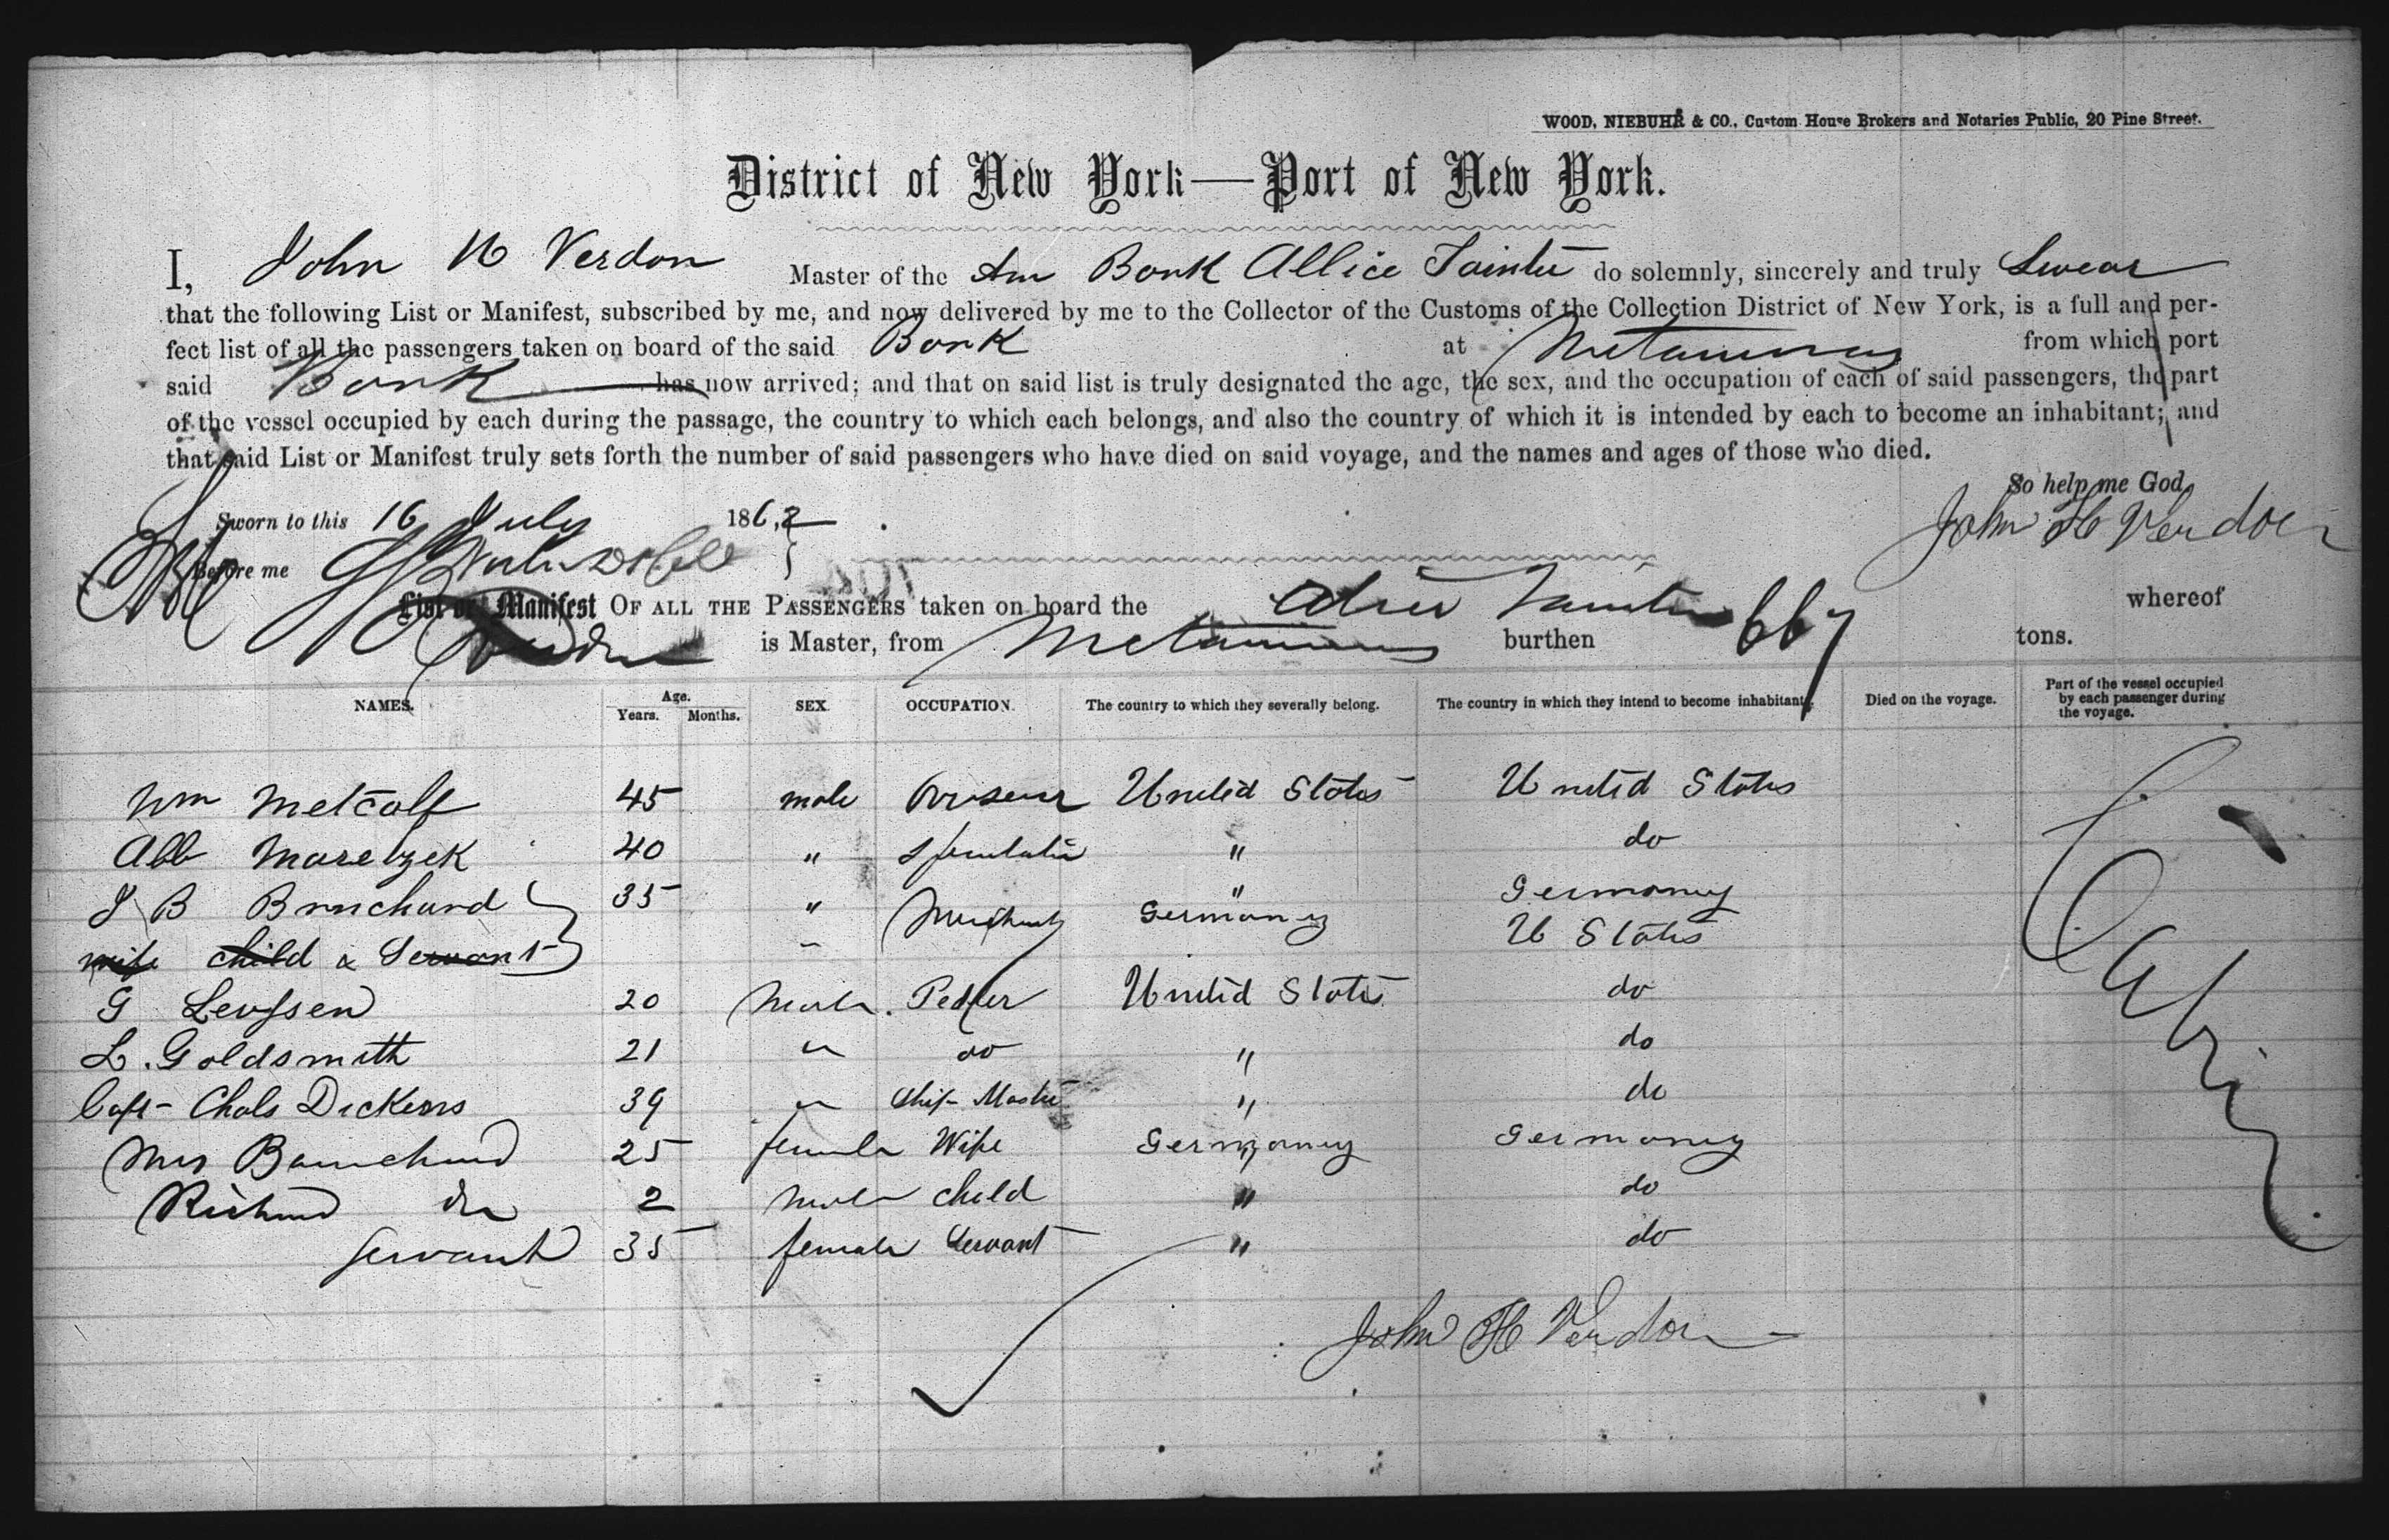 WOOD, NIEBUHR & CO., Custom House Brokers and Notaries Public, 20 Pine Street.
District of New York—Port of New York.
I, John H Verdon Master of the Am Bark Allice Tainter do solemnly, sincerely and truly Swear
that the following List or Manifest, subscribed by me, and now delivered by me to the Collector of the Customs of the Collection District of New York, is a full and per-
fect list of all the passengers taken on board of the said Bark at Metamoras from which port
said Bark has now arrived; and that on said list is truly designated the age, the sex, and the occupation of each of said passengers, the part
of the vessel occupied by each during the passage, the country to which each belongs, and also the country of which it is intended by each to become an inhabitant; and
that said List or Manifest truly sets forth the number of said passengers who have died on said voyage, and the names and ages of those who died.
So help me God.
Sworn to this 16 July 1862
John H Verdon
Before me
List or Manifest OF ALL THE PASSENGERS taken on board the Alice Tainter whereof
Verdon is Master, from Metamoras burthen 667 tons.
NAMES. Age. Years. Months. SEX. OCCUPATION. The country to which they severally belong. The country in which they intend to become inhabitants. Died on the voyage. Part of the vessel occupied by each passenger during the voyage.
Wm Metcalf 45 male Overseer United States United States
Abb Maretzek 40 " Speculator " do
J B Branchard 35 " Merchant " Germany Germany
wife child & Servant U States
G Levssen 20 Male Pedler United States do
L. Goldsmith 21 " do " do
Capt Chals Dickens 39 " Ship Master " do
Mrs Bauchard 25 female Wife Germany Germany
Richard do 2 male child " do
servant 35 female Servant " do
Cabin
John H Verdon